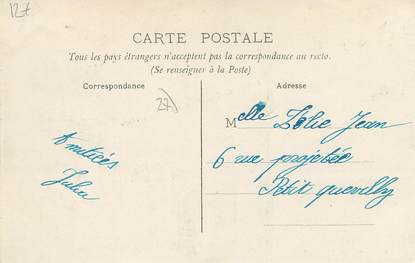 12t
CARTE POSTALE
Tous les pays étrangers n'acceptent pas la correspondance au recto.
(Se renseigner à la Poste)
Correspondance
Adresse
27
Melle Zélie Jean
6 rue projetée
Petit quevilly
Amitiés